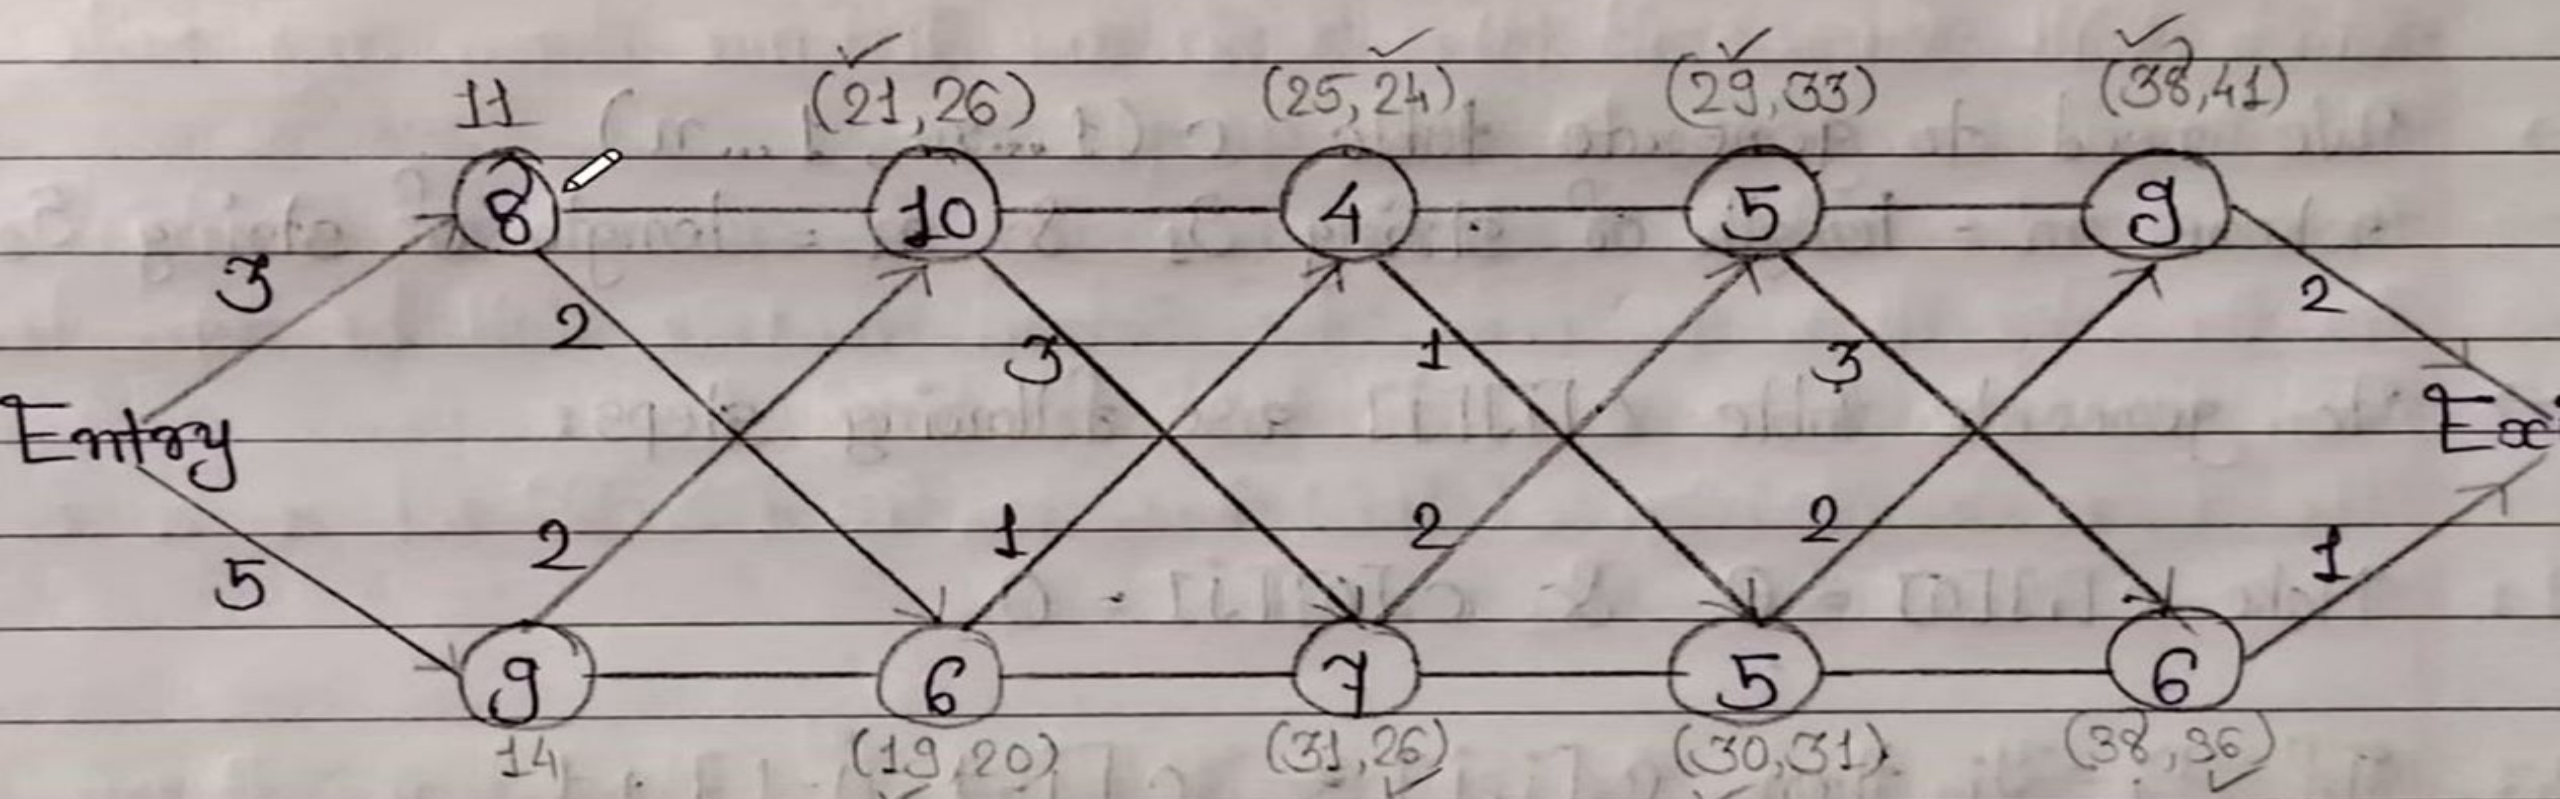 11 (21,26) (25,24) (29,33) (38,41)
8 10 4 5 9
3 2 3 1 3 2
Entry
5 2 1 2 2 1
9 6 7 5 6
14 (19,20) (31,26) (30,31) (38,36)